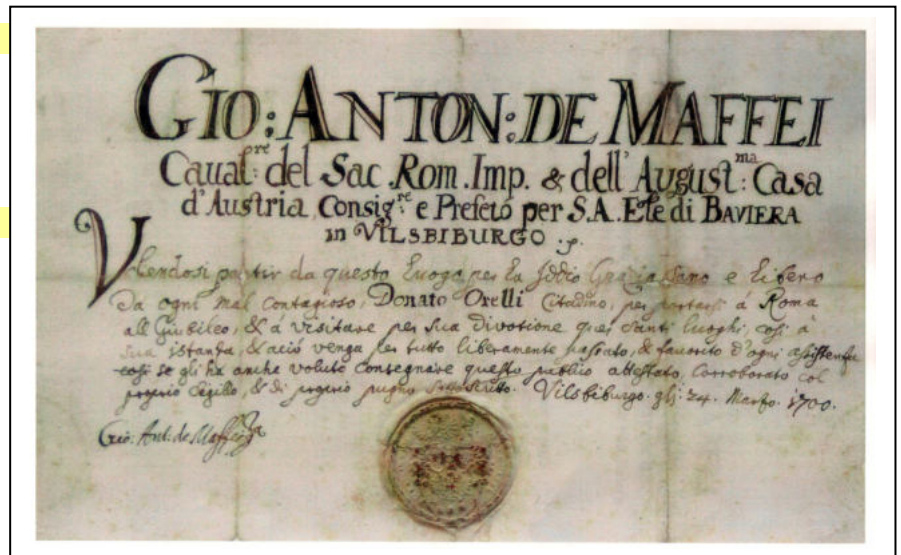 GIO: ANTON: DE MAFFEI
Caual:re del Sac. Rom. Imp. & dell' August:ma Casa
d'Austria, Consig:re e Prefeto per S.A. Ele di BAVIERA
in VILSBIBURGO
Volendosi partir da questo Luogo per la Iddio Grazia sano e libero
da ogni mal contagioso, Donato Orelli Citadino, per portarsi á Roma
all Giubileo, & á visitare per sua divotione quei Santi luoghi, cosi á
sua istanza, & aciò venga per tutto liberamente passato, & fauorito d'ogni assistenza
cosi se gli ha anche voluto consegnare questo publio attestato, Corroborato col
proprio Sigillo, & di proprio pugno sottoscritto. Vilsbiburgo. gli: 24. Marzo. 1700.
Gio: Ant: de Maffei